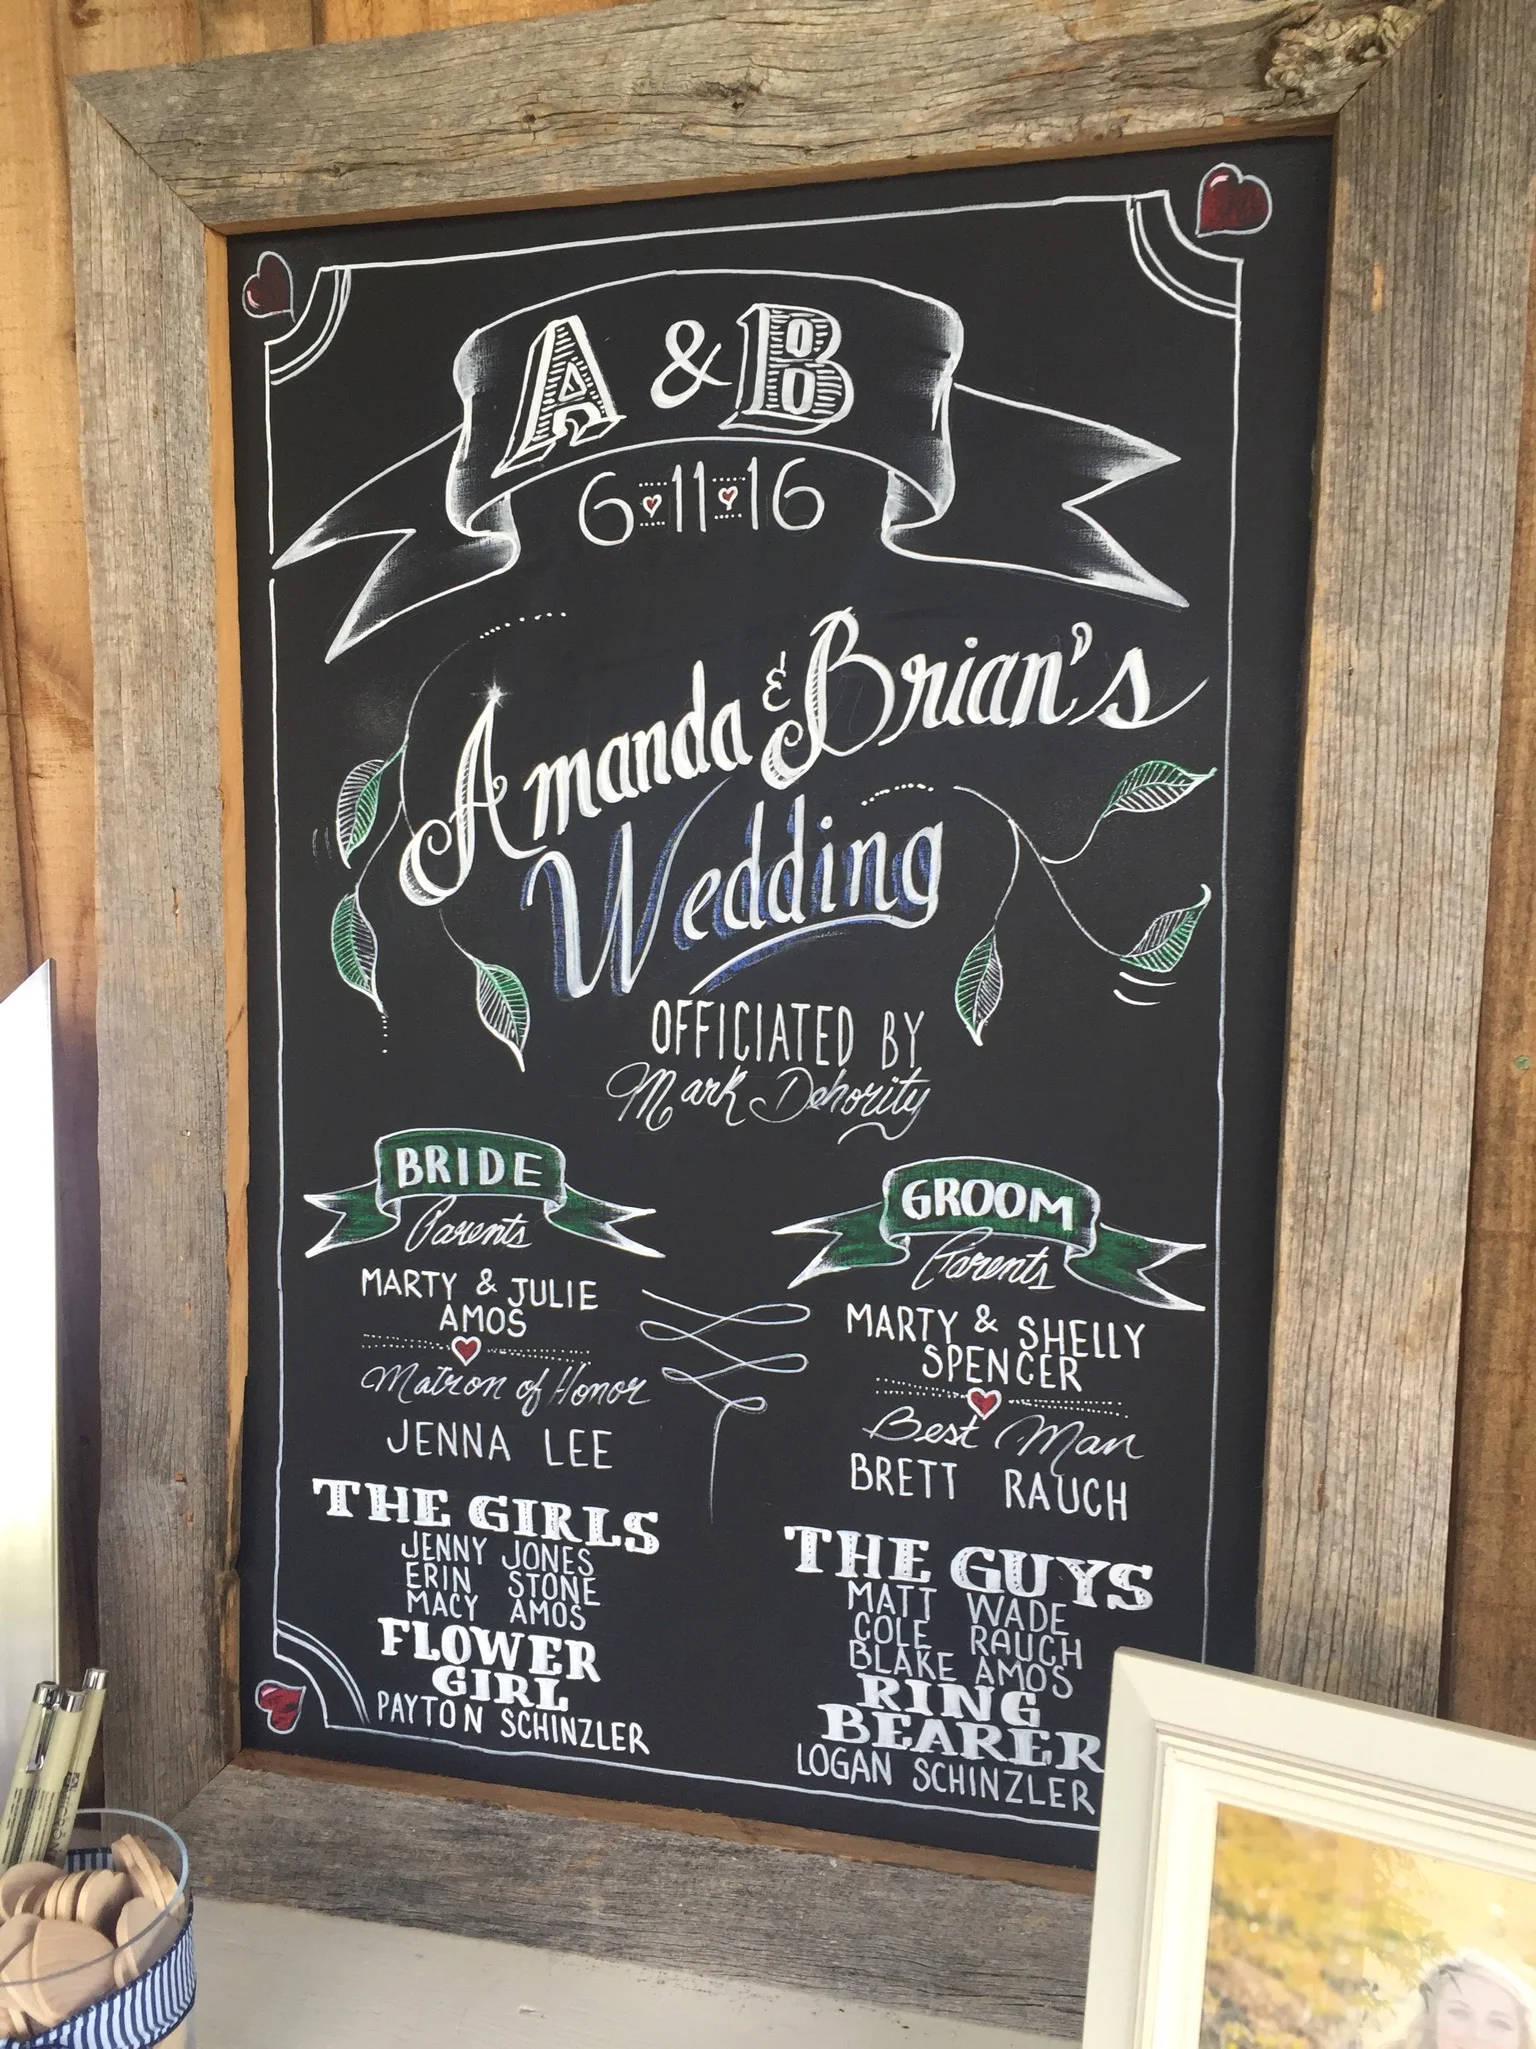 A & B
6·11·16
Amanda & Brian's
Wedding
OFFICIATED BY
Mark Dehority
BRIDE
Parents
MARTY & JULIE
AMOS
Matron of Honor
JENNA LEE
THE GIRLS
JENNY JONES
ERIN STONE
MACY AMOS
FLOWER
GIRL
PAYTON SCHINZLER
GROOM
Parents
MARTY & SHELLY
SPENCER
Best Man
BRETT RAUCH
THE GUYS
MATT WADE
COLE RAUCH
BLAKE AMOS
RING
BEARER
LOGAN SCHINZLER